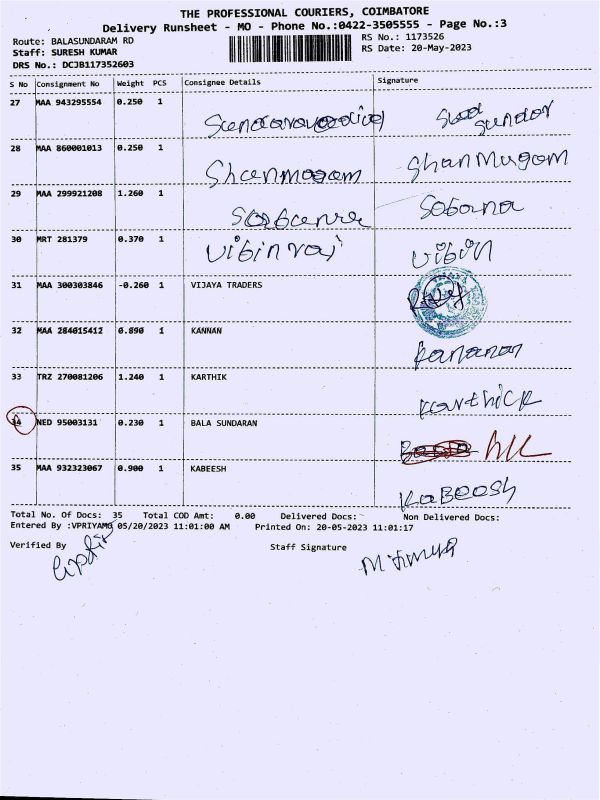 THE PROFESSIONAL COURIERS, COIMBATORE
Delivery Runsheet - MO - Phone No.:0422-3505555 - Page No.:3
Route: BALASUNDARAM RD RS No.: 1173526
Staff: SURESH KUMAR RS Date: 20-May-2023
DRS No.: DCJB117352603
S No Consignment No Weight PCS Consignee Details Signature
27 MAA 943295554 0.250 1 sundor
28 MAA 860001013 0.250 1 Shanmogam ShanMugam
29 MAA 299921208 1.260 1 Sobana
30 MRT 281379 0.370 1 Vibin raj Vibin
31 MAA 300303846 -0.260 1 VIJAYA TRADERS
32 MAA 284015412 0.890 1 KANNAN
33 TRZ 270081206 1.240 1 KARTHIK Karthick
34 NED 95003131 0.230 1 BALA SUNDARAN
35 MAA 932323067 0.900 1 KABEESH KaBeesh
Total No. Of Docs: 35 Total COD Amt: 0.00 Delivered Docs: Non Delivered Docs:
Entered By :VPRIYAMO 05/20/2023 11:01:00 AM Printed On: 20-05-2023 11:01:17
Verified By Staff Signature